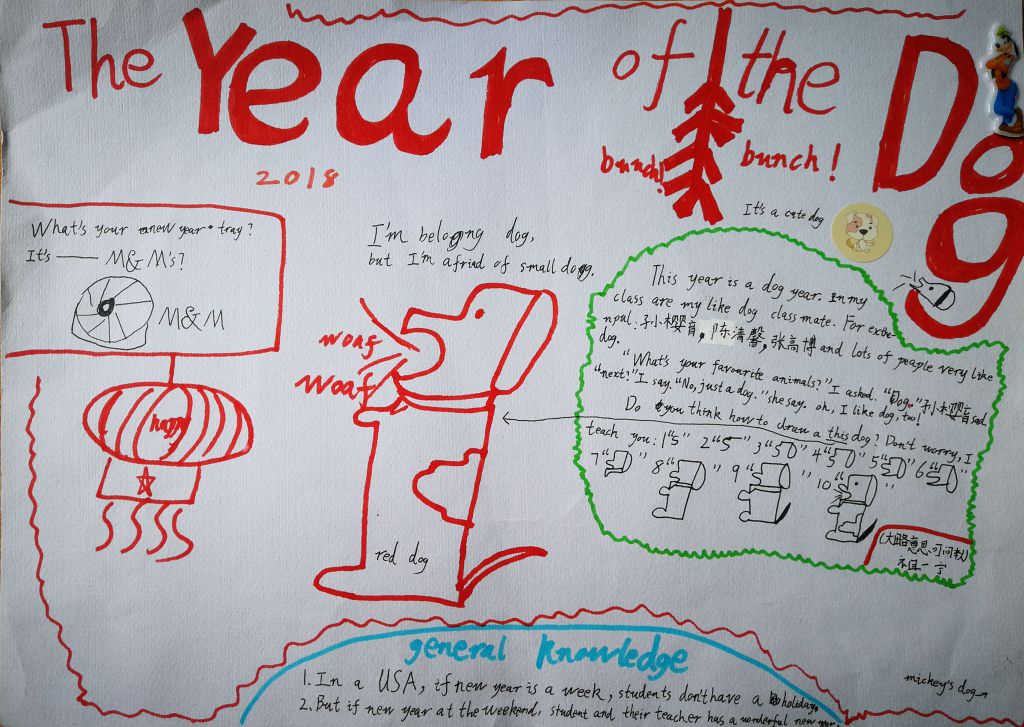 The Year of the Dog
2018
bunch!
bunch!
It's a cute dog
What's your new year tray?
It's —— M&M's?
M&M
happy
I'm belogng dog,
but I'm afriad of small dog.
woaf
woaf
red dog
This year is a dog year. In my
class are my like dog class mate. For exthe-
npul. 孙小樱育, 陈清馨, 张高博 and lots of people very like
dog.
"What's your favourite animals?" I asked. "Dog." 孙小樱育 said.
"next?" I say. "No, just a dog." she say. oh, I like dog, too!
Do you think how to draw a this dog? Don't worry, I
teach you: 1 2 3 4 5 6
7 8 9 10
(大略意思可问秋)
祖一宁
general knowledge
1. In a USA, if new year is a week, students don't have a holiday.
2. But if new year at the weekend, student and their teacher has a wonderful new year
mickey's dog→